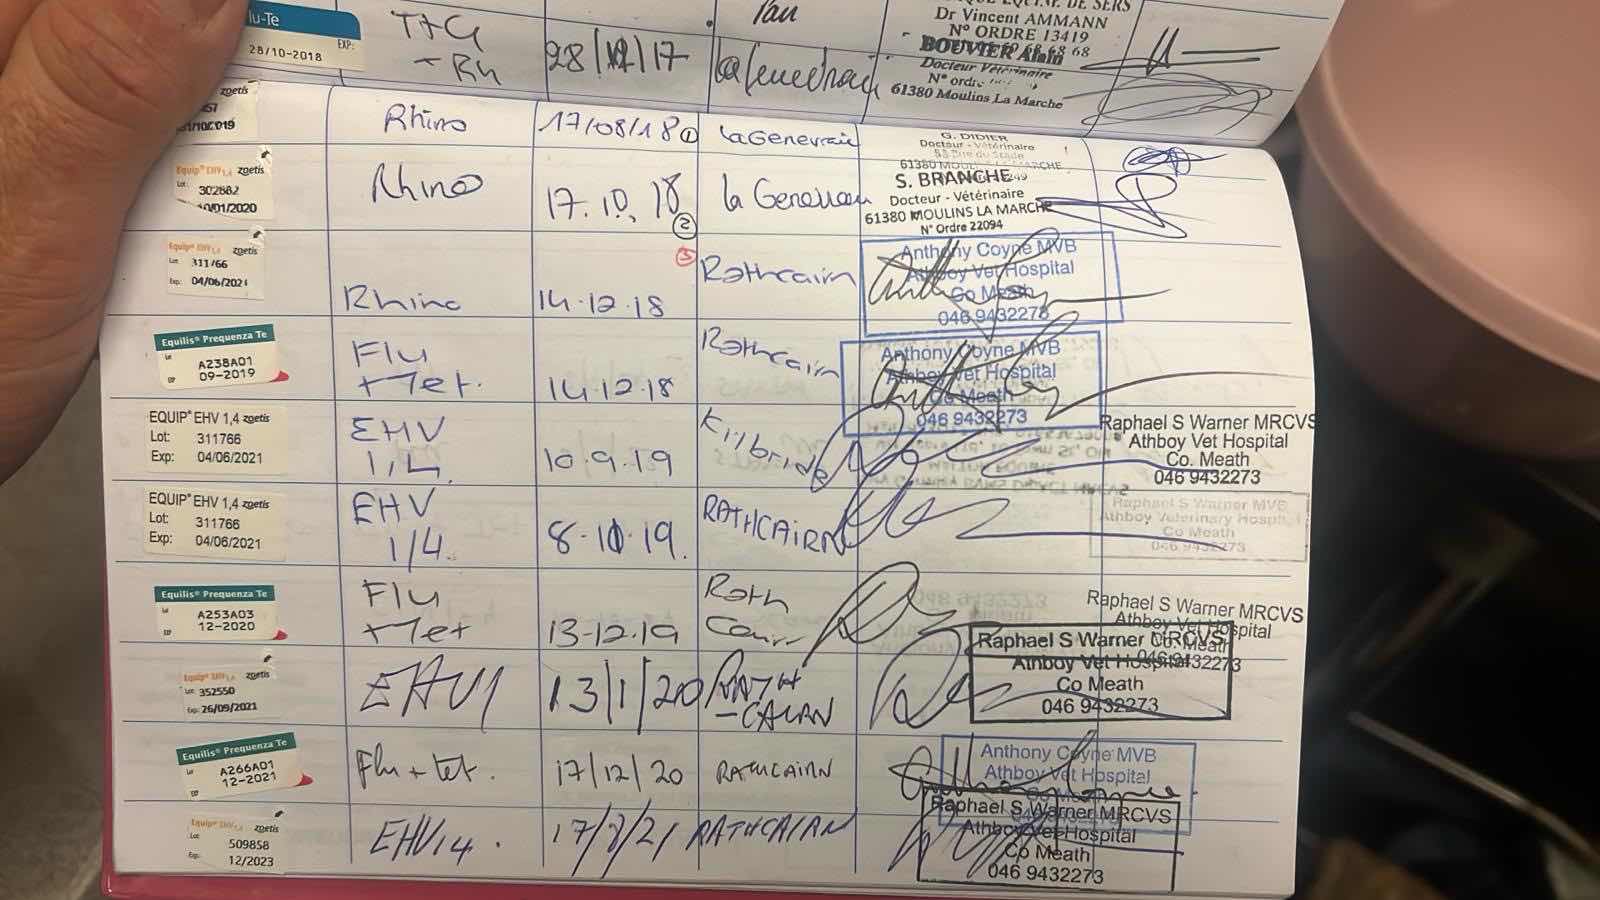 lu-Te
28/10-2018 EXP:
T+G
- Rh
28/12/17
Pau
Dr Vincent AMMANN
N° ORDRE 13419
BOUVIER Alain
Docteur Vétérinaire
N° ordre
61380 Moulins La Marche
zoetis
Rhino
17/08/18 ①
la Genevraie
G. DIDIER
Docteur - Vétérinaire
61380 MOULINS LA MARCHE
Equip® EHV1,4 zoetis
Lot: 302882
Rhino
17.10.18
②
S. BRANCHE
Docteur - Vétérinaire
61380 MOULINS LA MARCHE
N° Ordre 22094
Equip® EHV1,4 zoetis
Lot: 311766
Exp: 04/06/2021
Rhino
14.12.18
③
Rathcairn
Anthony Coyne MVB
Athboy Vet Hospital
Co Meath
046 9432273
Equilis® Prequenza Te
Lot A238A01
EXP 09-2019
Flu
+Tet.
14.12.18
Rathcairn
Anthony Coyne MVB
Athboy Vet Hospital
Co Meath
046 9432273
EQUIP® EHV 1,4 zoetis
Lot: 311766
Exp: 04/06/2021
EHV
1,4.
10.9.19
Kilbride
Raphael S Warner MRCVS
Athboy Vet Hospital
Co. Meath
046 9432273
EQUIP® EHV 1,4 zoetis
Lot: 311766
Exp: 04/06/2021
EHV
1/4.
8.10.19.
RATHCAIRN
Raphael S Warner MVB
Athboy Veterinary Hospital
Co Meath
046 9432273
Equilis® Prequenza Te
Lot A253A03
EXP 12-2020
Flu
+Tet
13.12.19
Rath
Cairn
Raphael S Warner MRCVS
Athboy Vet Hospital
Co. Meath
046 9432273
Equip® EHV1,4 zoetis
Lot: 352550
Exp: 26/09/2021
EHV1
13/1/20
RATH
-CAIRN
Raphael S Warner MRCVS
Athboy Vet Hospital
Co Meath
046 9432273
Equilis® Prequenza Te
Lot A266A01
EXP 12-2021
Flu + tet.
17/12/20
RATHCAIRN
Anthony Coyne MVB
Athboy Vet Hospital
Equip® EHV1,4 zoetis
Lot: 509858
Exp: 12/2023
EHV14.
RATHCAIRN
Raphael S Warner MRCVS
Athboy Vet Hospital
Co Meath
046 9432273